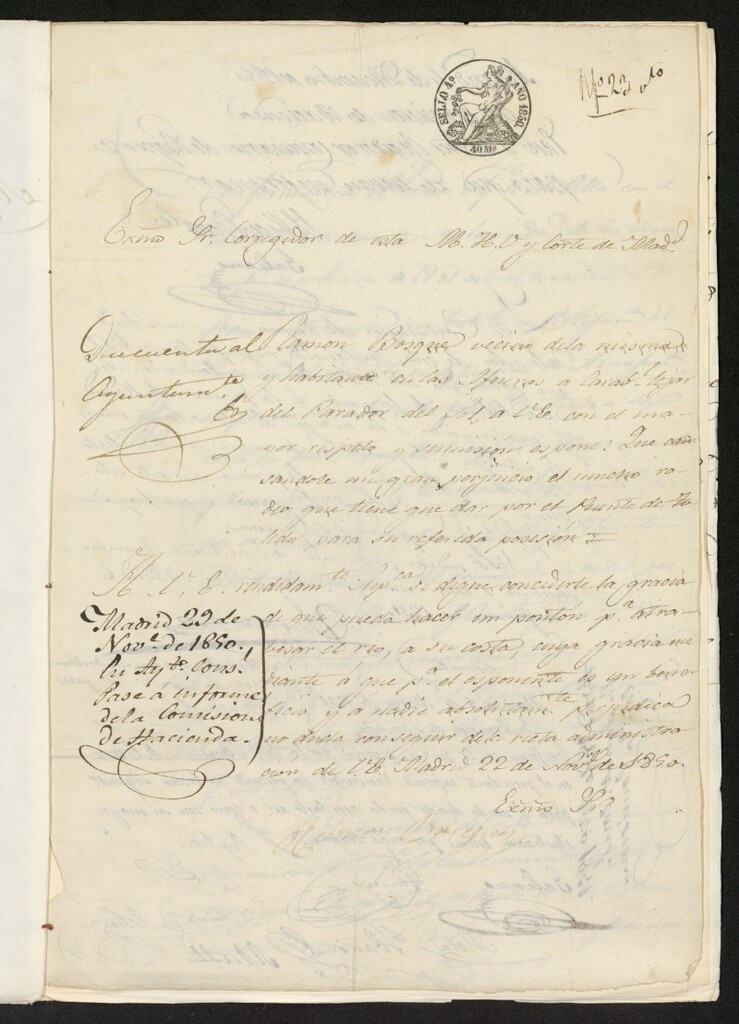 SELLO 4º AÑO 1850.
40 Ms
Nº 23
Exmo Sr. Corregidor de esta M. H. V. y Corte de Madd.
Dese cuenta al
Ayuntamto
Ramon Bosque vecino de la misma
y habitante en las Afueras a Carabl tejar
del Parador del Sol, á V. E. con el ma-
yor respeto y sumision espone: Que cau-
sandole un gran perjuicio el mucho ro-
deo que tiene que dar por el Puente de To-
ledo para su referida posesión =
A V. E. rendidamte Supca se digne concederle la gracia
de que pueda hacer un ponton pa atra-
vesar el rio, a su costa, cuya gracia me-
diante á que pa el esponente es un bene-
ficio y a nadie absolutamte perjudica
no duda conseguir de la recta administra-
cion de V. E. Madrid 22 de Nove de 1850.
Exmo Sr.
Ramon Bosque
Madrid 29 de
Nove de 1850.
En Aytº Consl
Pase á informe
de la Comision
de Hacienda.